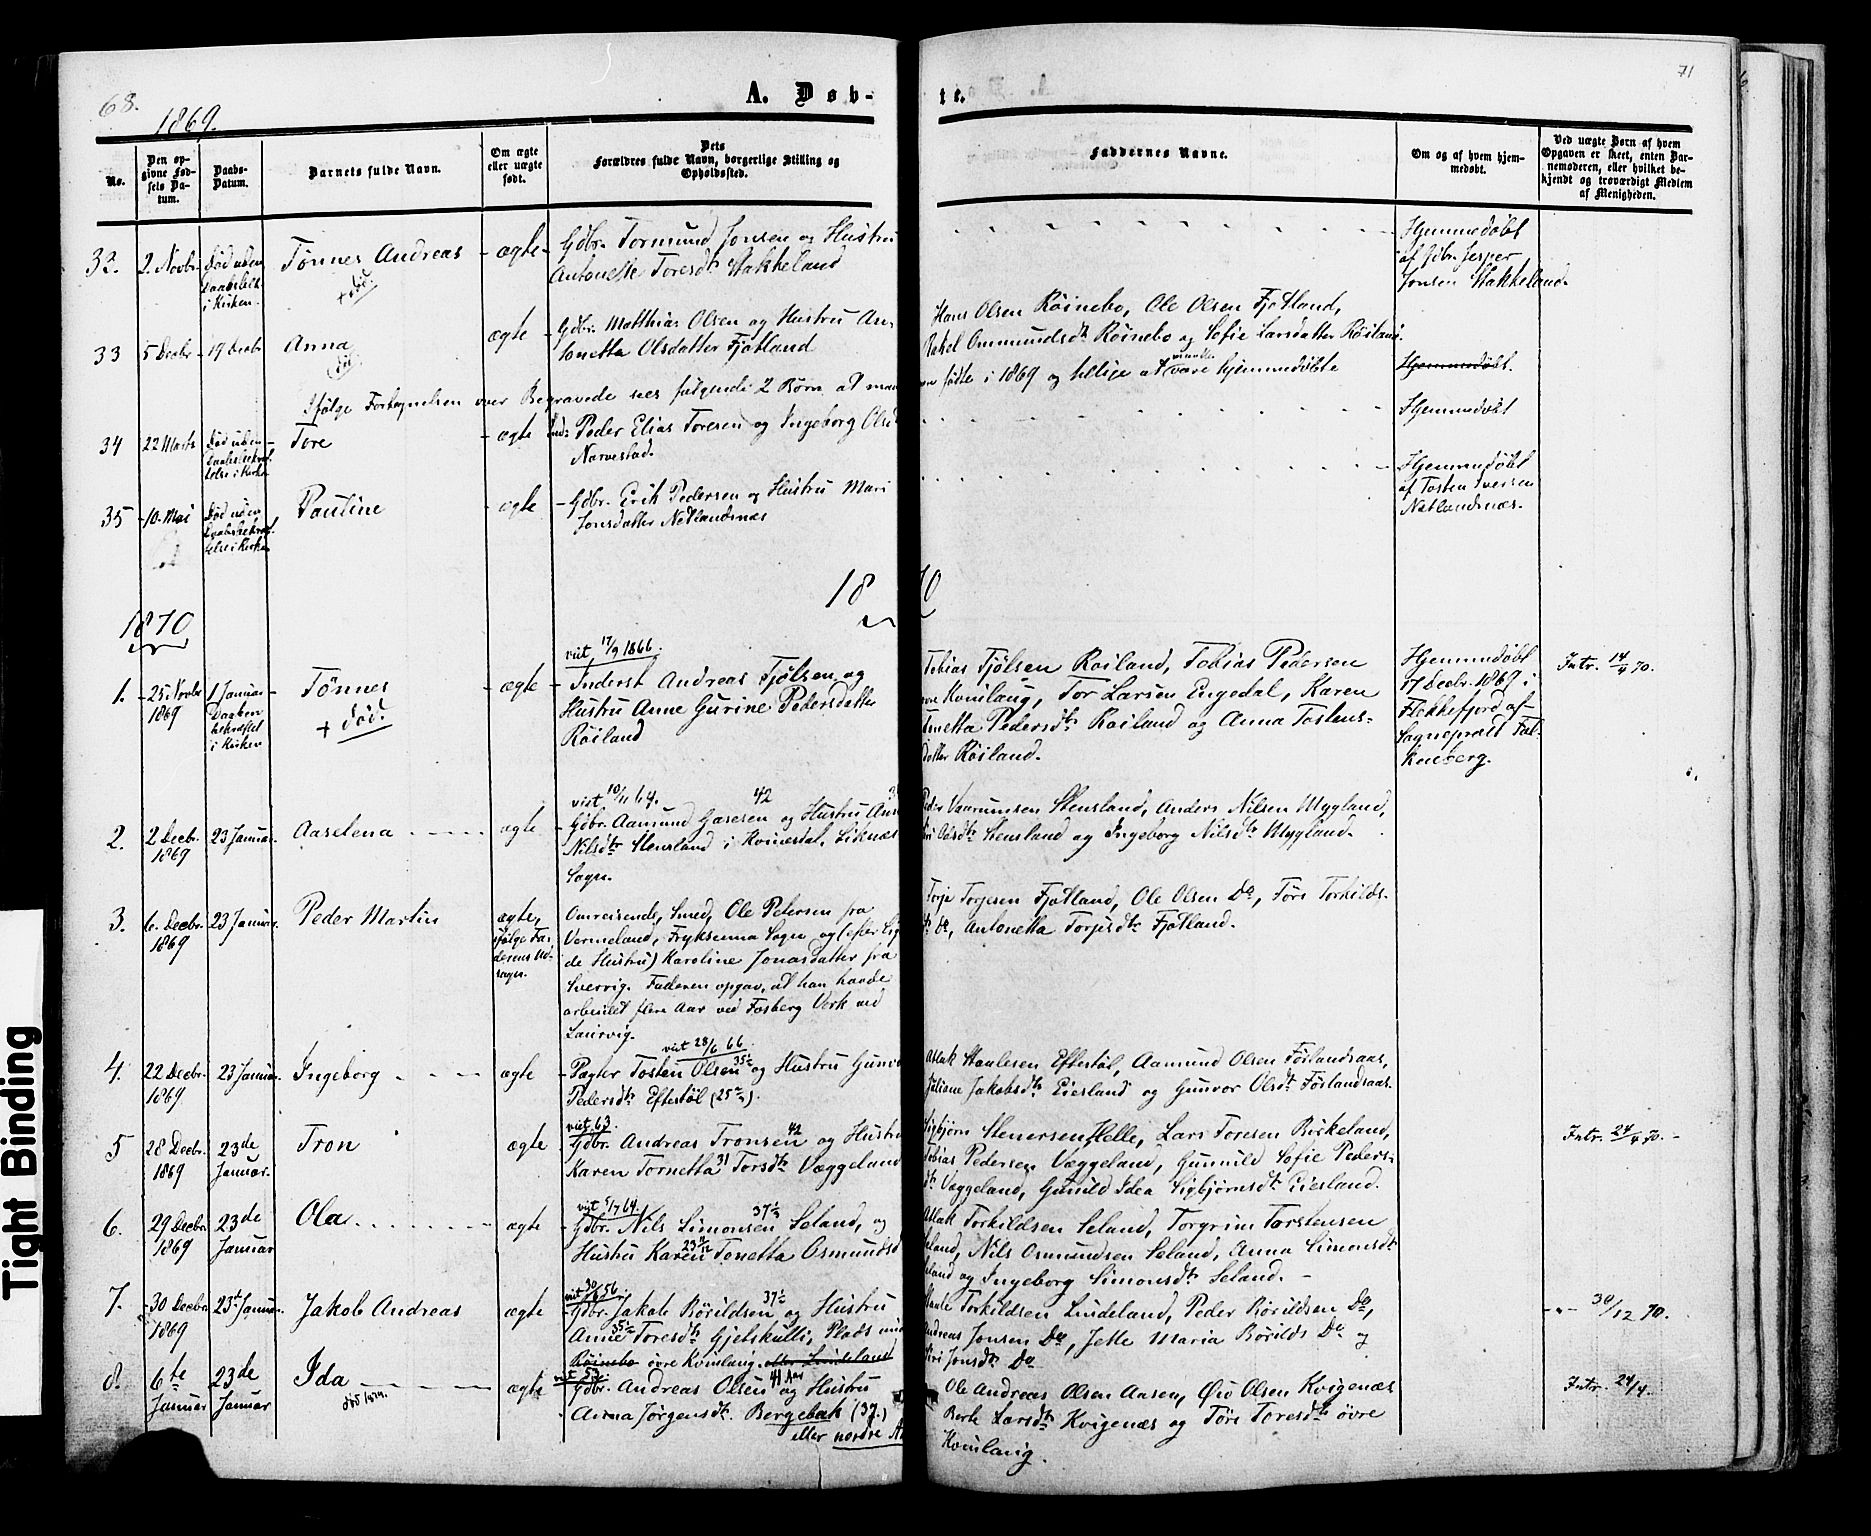 68.
1869.
A. Døb-
te.
71
No.
Den op-
givne Fød-
sels Da-
tum.
Daabs-
Datum.
Barnets fulde Navn.
Om ægte
eller uægte
født.
Dets
Forældres fulde Navn, borgerlige Stilling og
Opholdssted.
Faddernes Navne.
Om og af hvem hjem-
medøbt.
Ved uægte Børn af hvem
Opgaven er skeet, enten Bar-
nemoderen, eller hvilket be-
kjendt og troværdigt Medlem
af Menigheden.
32.
2. Novbr.
Død uden
Daabsbekr.
i Kirken.
Tønnes Andreas
+ død.
ægte
Gdbr. Tormund Jonsen og Hustru
Antonette Toresdtr Stakkeland
Hjemmedøbt
af Gdbr. Jesper
Jonsen Stakkeland.
33
5 Decbr
19 Decbr
Anna
død
ægte
Gdbr. Matthias Olsen og Hustru An-
tonetta Olsdatter Fjotland
Hans Olsen Røinebo, Ole Olsen Fjotland,
Rakel Ommundsdtr Røinebo og Sofie Larsdatter Røiland.
Hjemmedøbt.
Ifølge Fortegnelsen over Begravede sees følgende 2 Børn at være
født i 1869 og tillige at være hjemmedøbte
34
22 Marts
Død uden
Daabsbekræf-
telse i Kirken
Tore
ægte
Ind: Peder Elias Toresen og Ingeborg Olsd
Narvestad.
Hjemmedøbt
35
10. Mai
Død uden
Daabsbekræf-
telse i Kirken
Pauline
ægte
Gdbr. Erik Pedersen og Hustru Mari
Jonsdatter Netlandsnæs
Hjemmedøbt
af Tosten Iversen
Netlandsnæs.
1870
1870
1.
25 Novbr
1869
1 Januar
Daaben
bekræftet
i Kirken
Tønnes
+ død.
ægte
viet 17/9 1866.
Inderst Andreas Tjølsen og
Hustru Anne Gurine Pedersdatter
Røiland
Tobias Tjølsen Røiland, Tobias Pedersen
øvre Kvinlaug, Tor Larsen Engedal, Karen
Tonetta Pedersdtr Røiland og Anna Tostens-
datter Røiland.
Hjemmedøbt
17 Decbr. 1869 i
Flekkefjord af
Sognepræst Fal-
kenberg.
Intr. 14/4 70.
2.
2 Decbr.
1869
23 Januar.
Aaselena
ægte
viet 10/11 64.
42
Gdbr. Aamund Gasesen og Hustru Anne
Nilsdtr Stensland i Kvinesdal, Liknæs
Sogn.
Peder Vaarumsen Stensland, Anders Nilsen Mygland,
Siri Aasdtr Stensland og Ingeborg Nilsdtr Mygland.
3.
6. Decbr.
1869
23 Januar.
Peder Martin
ægte,
ifølge Fa-
derens Ud-
sagn.
Omreisende, Smed, Ole Petersen fra
Vermeland, Fryksenna Sogn og (efter Sig-
de Hustru) Karoline Jonasdatter fra
Sverrig. Faderen opgav, at han havde
arbeidet flere Aar ved Fosberg Verk ved
Laurvig.
Torje Torjesen Fjotland, Ole Olsen Do, Tøre Torkilds-
dtr Do, Antonetta Torjusdtr Fjotland.
4.
22 Decbr.
1869
23 Januar.
Ingeborg
ægte
viet 28/6 66
35½
Pagter Tosten Olsen og Hustru Gunvor
Pedersdtr Eftestøl (25½).
Aslak Staalesen Eftestøl, Aamund Olsen Førlandsaas,
Juliane Jakobsdtr Eiesland og Gunvor Olsdtr Førlandsaas.
5
28 Decbr.
1869
23de
Januar.
Tron
ægte
viet 63.
42
Gdbr. Andreas Tronsen og Hustru
Karen Tornetta 31 Torsdtr Væggeland
Sigbjørn Stenersen Helle, Lars Toresen Birkeland,
Tobias Pedersen Væggeland, Gunnild Sofie Peders-
dtr Væggeland, Gunild Idea Sigbjørnsdtr Eiesland.
Intr. 24/4 70.
6.
29 Decbr
1869
23de
Januar
Ola
ægte
viet 5/7 64.
37½
Gdbr. Nils Simonsen Seland, og
Hustru Karen Tonetta Osmundsd
Aslak Torkildsen Seland, Torgrim Torstensen
Seland, Nils Osmundsen Seland, Anna Simonsdtr
Seland og Ingeborg Simonsdtr Seland.
7.
30 Decbr
1869
23de Januar.
Jakob Andreas
ægte
viet 30/6 56
37½
Gdbr. Jakob Børildsen og Hustru
Anne Toresdtr Gjetskulli, Plads under
Røinebo øvre Kvinlaug. eller Lindeland
Staale Torkildsen Lindeland, Peder Børildsen Do,
Andreas Jonsen Do, Jette Maria Børilds Do og
Siri Jonsdtr Do
-"- 30/12 70.
8.
6te
Januar
23de
Januar
Ida
død 1874.
ægte
viet 53.
41 Aar
Gdbr. Andreas Olsen og Hustru
Anna Jørgensdtr. Bergebak (37.)
eller nordre
Ole Andreas Olsen Aasen, Ole Olsen Kvigenæs
Berte Larsdtr Kvigenæs og Tøre Toresdtr øvre
Kvinlaug.
Intr. 24/4.
Tight Binding